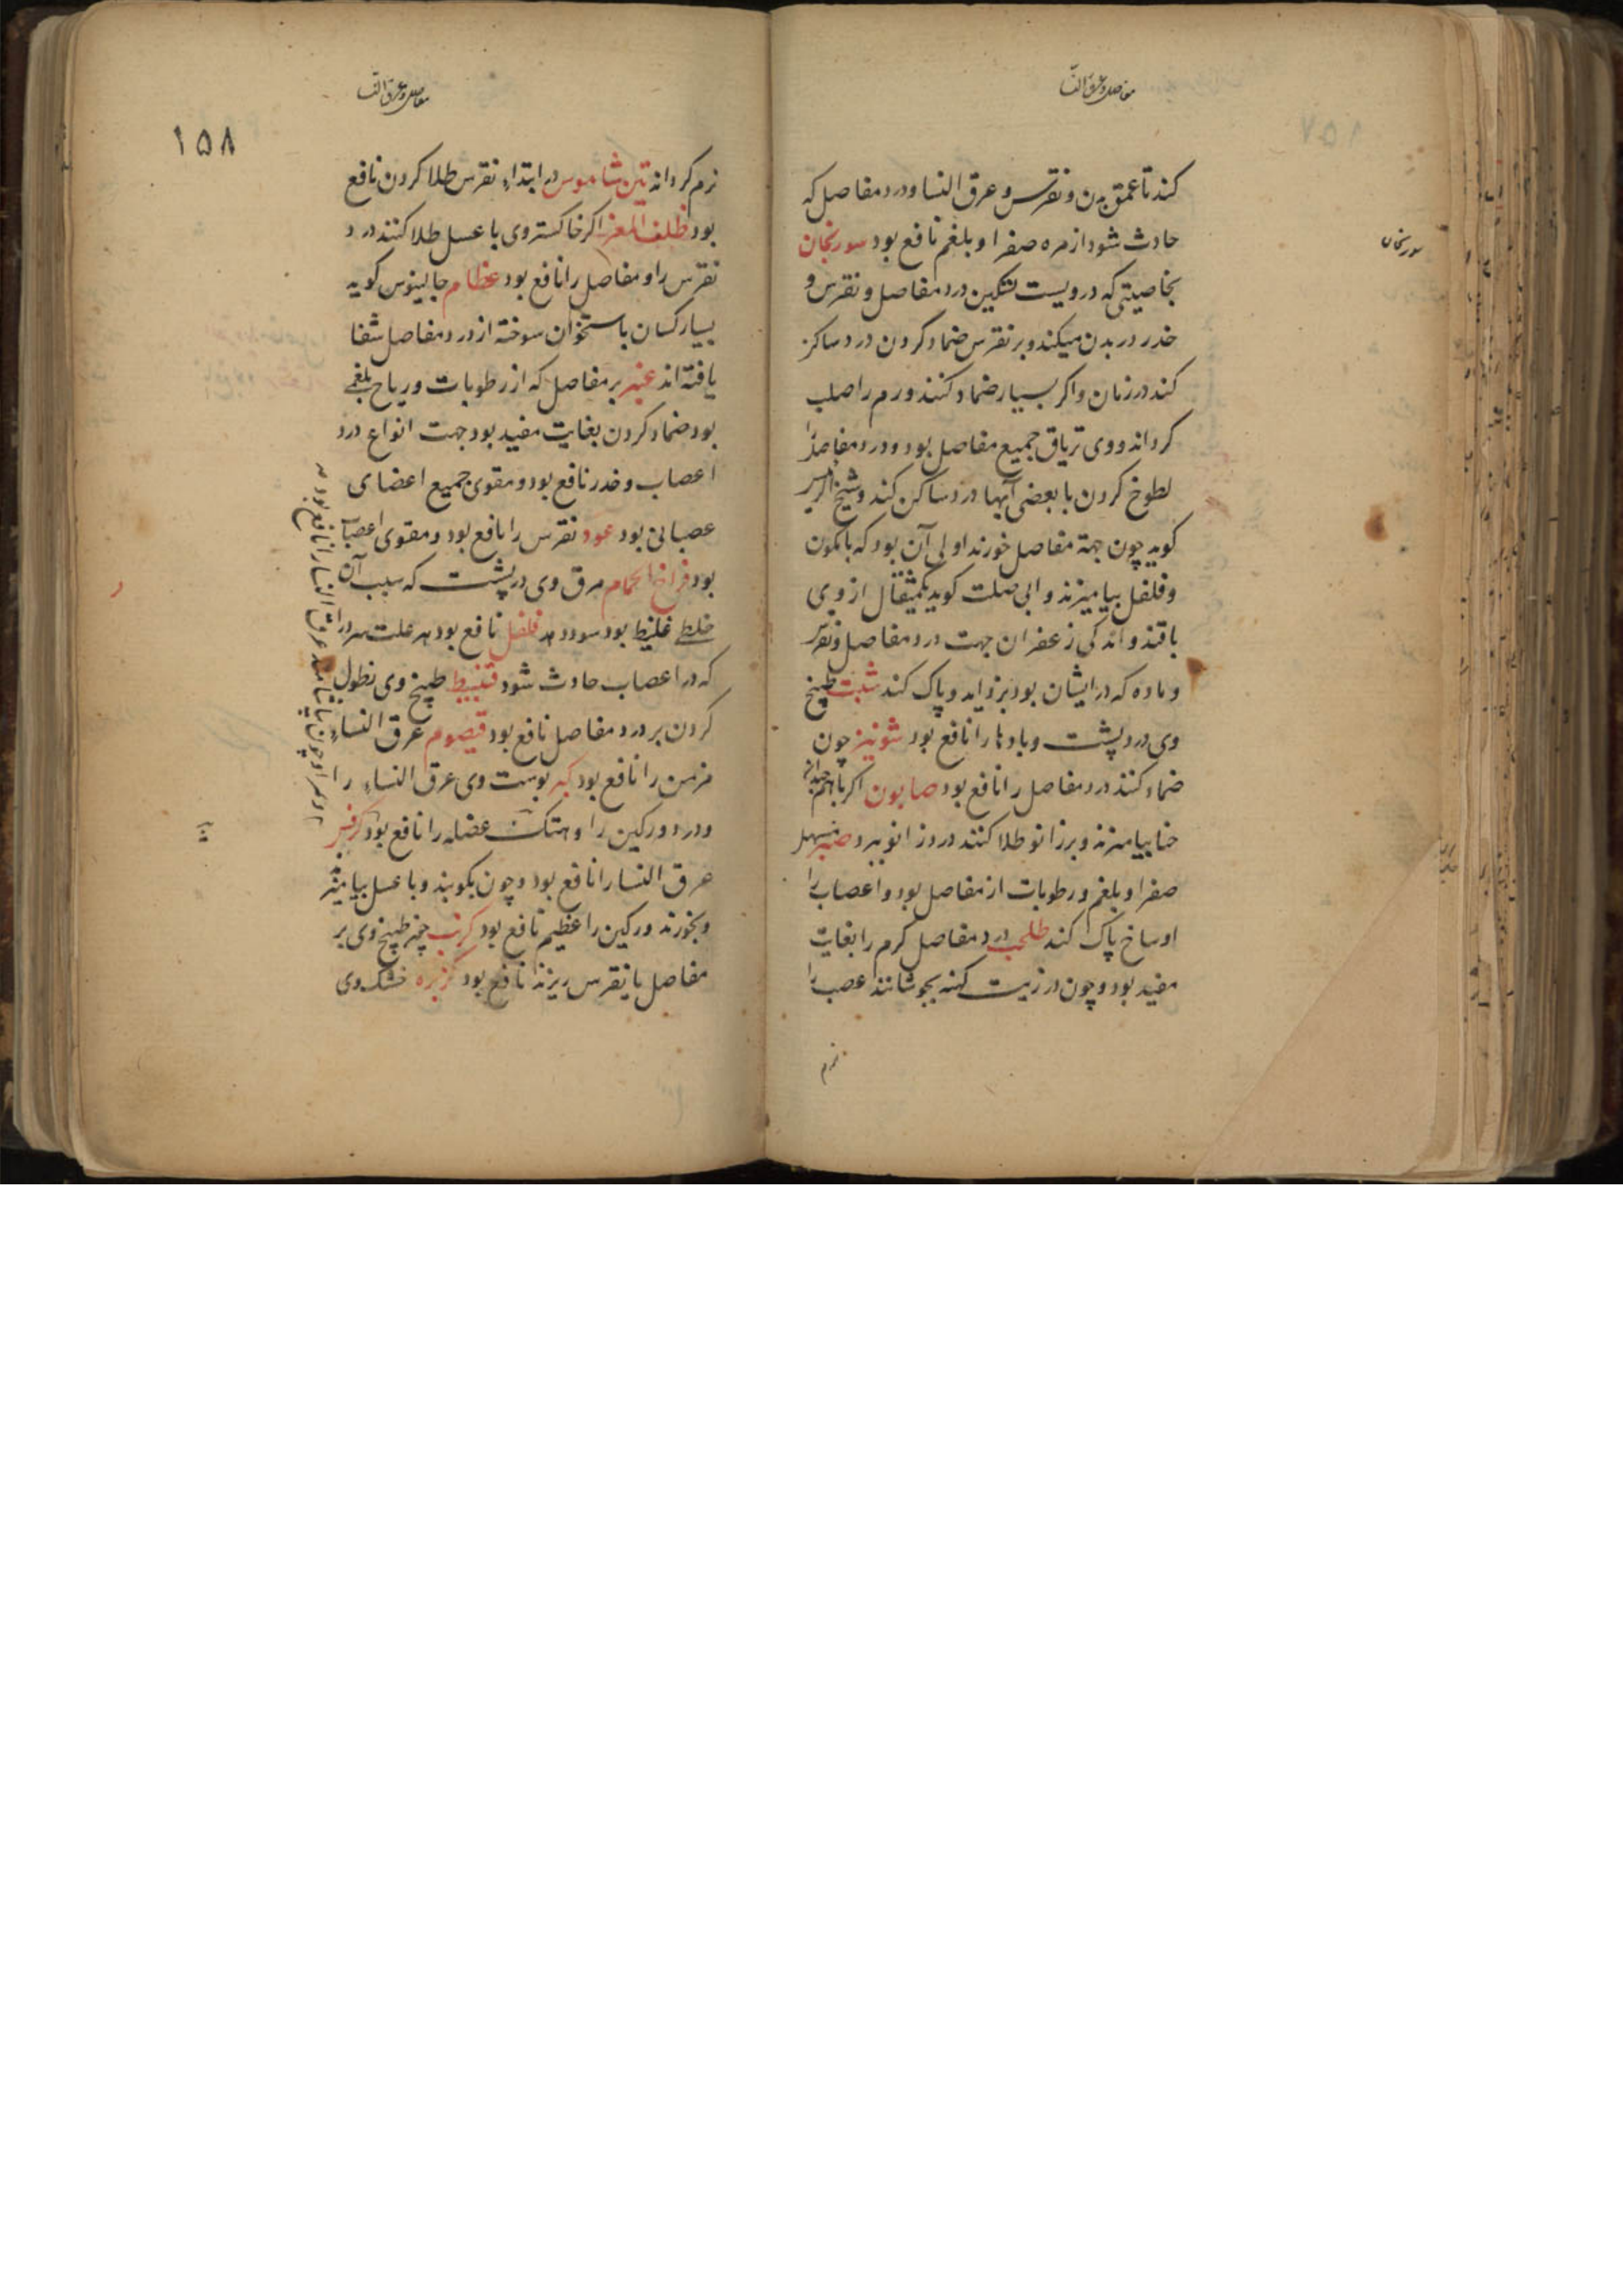 مفاصل و عرق النسا
کند تا عمق بدن و نقرس و عرق النسا و درد مفاصل که
حادث شود از مره صفرا و بلغم نافع بود سورنجان
سورنجان
بخاصیتی که درویست تسکین درد مفاصل و نقرس و
خدر در بدن میکند و بر نقرس ضماد کردن درد ساکن
کند در زمان و اکر بسیار ضماد کنند ورم را صلب
کرداند و وی تریاق جمیع مفاصل بود و درد مفاصل را
لطوخ کردن با بعضی آبها درد ساکن کند و شیخ الرئیس
کوید چون جهة مفاصل خورند اولی آن بود که با کمون
و فلفل بیامیزند و ابی صلت کوید یکمثقال از وی
با قند و اندکی زعفران جهت درد مفاصل و نقرس
و ماده که در ایشان بود بزداید و پاک کند شبت طبیخ
وی درد پشت و بادها را نافع بود شونیز چون
ضماد کنند درد مفاصل را نافع بود صابون اکر با هم چندانه
حنا بیامیزند و بر زانو طلا کنند درد زانو ببرد صبر مسهل
صفرا و بلغم و رطوبات از مفاصل بود و اعصاب را
اوساخ پاک کند طحلب درد مفاصل کرم را بغایت
مفید بود و چون در زیت کهنه بجوشانند عصب را
نرم
مفاصل و عرق النسا
۱۵۸
نرم کرداند تین شاموس در ابتداء نقرس طلا کردن نافع
بود ظلف المعز اکر خاکستر وی با عسل طلا کنند درد
نقرس را و مفاصل را نافع بود عظام جالینوس کوید
بسیار کسان باستخوان سوخته از درد مفاصل شفا
یافته اند عنبر بر مفاصل که از رطوبات و ریاح بلغمی
بود ضماد کردن بغایت مفید بود جهت انواع درد
اعصاب و خدر نافع بود و مقوی جمیع اعضای
عصبانی بود عود نقرس را نافع بود و مقوی اعصاب
بود فراخ الحمام مرق وی درد پشت که سبب آن
خلط غلیظ بود سود دهد فلفل نافع بود هر علت سرد را
که در اعصاب حادث شود قنبیط طبیخ وی نطول
کردن بر درد مفاصل نافع بود قیصوم عرق النساء
مزمن را نافع بود کبر پوست وی عرق النساء را
و درد ورکین را و هتک عضله را نافع بود کرفس
عرق النسا را نافع بود و چون بکوبند و با عسل بیامیزند
و بخورند ورکین را عظیم نافع بود کرنب چون طبیخ وی بر
مفاصل یا نقرس ریزند نافع بود کزبره خشک وی
عرق النسا را نافع بود